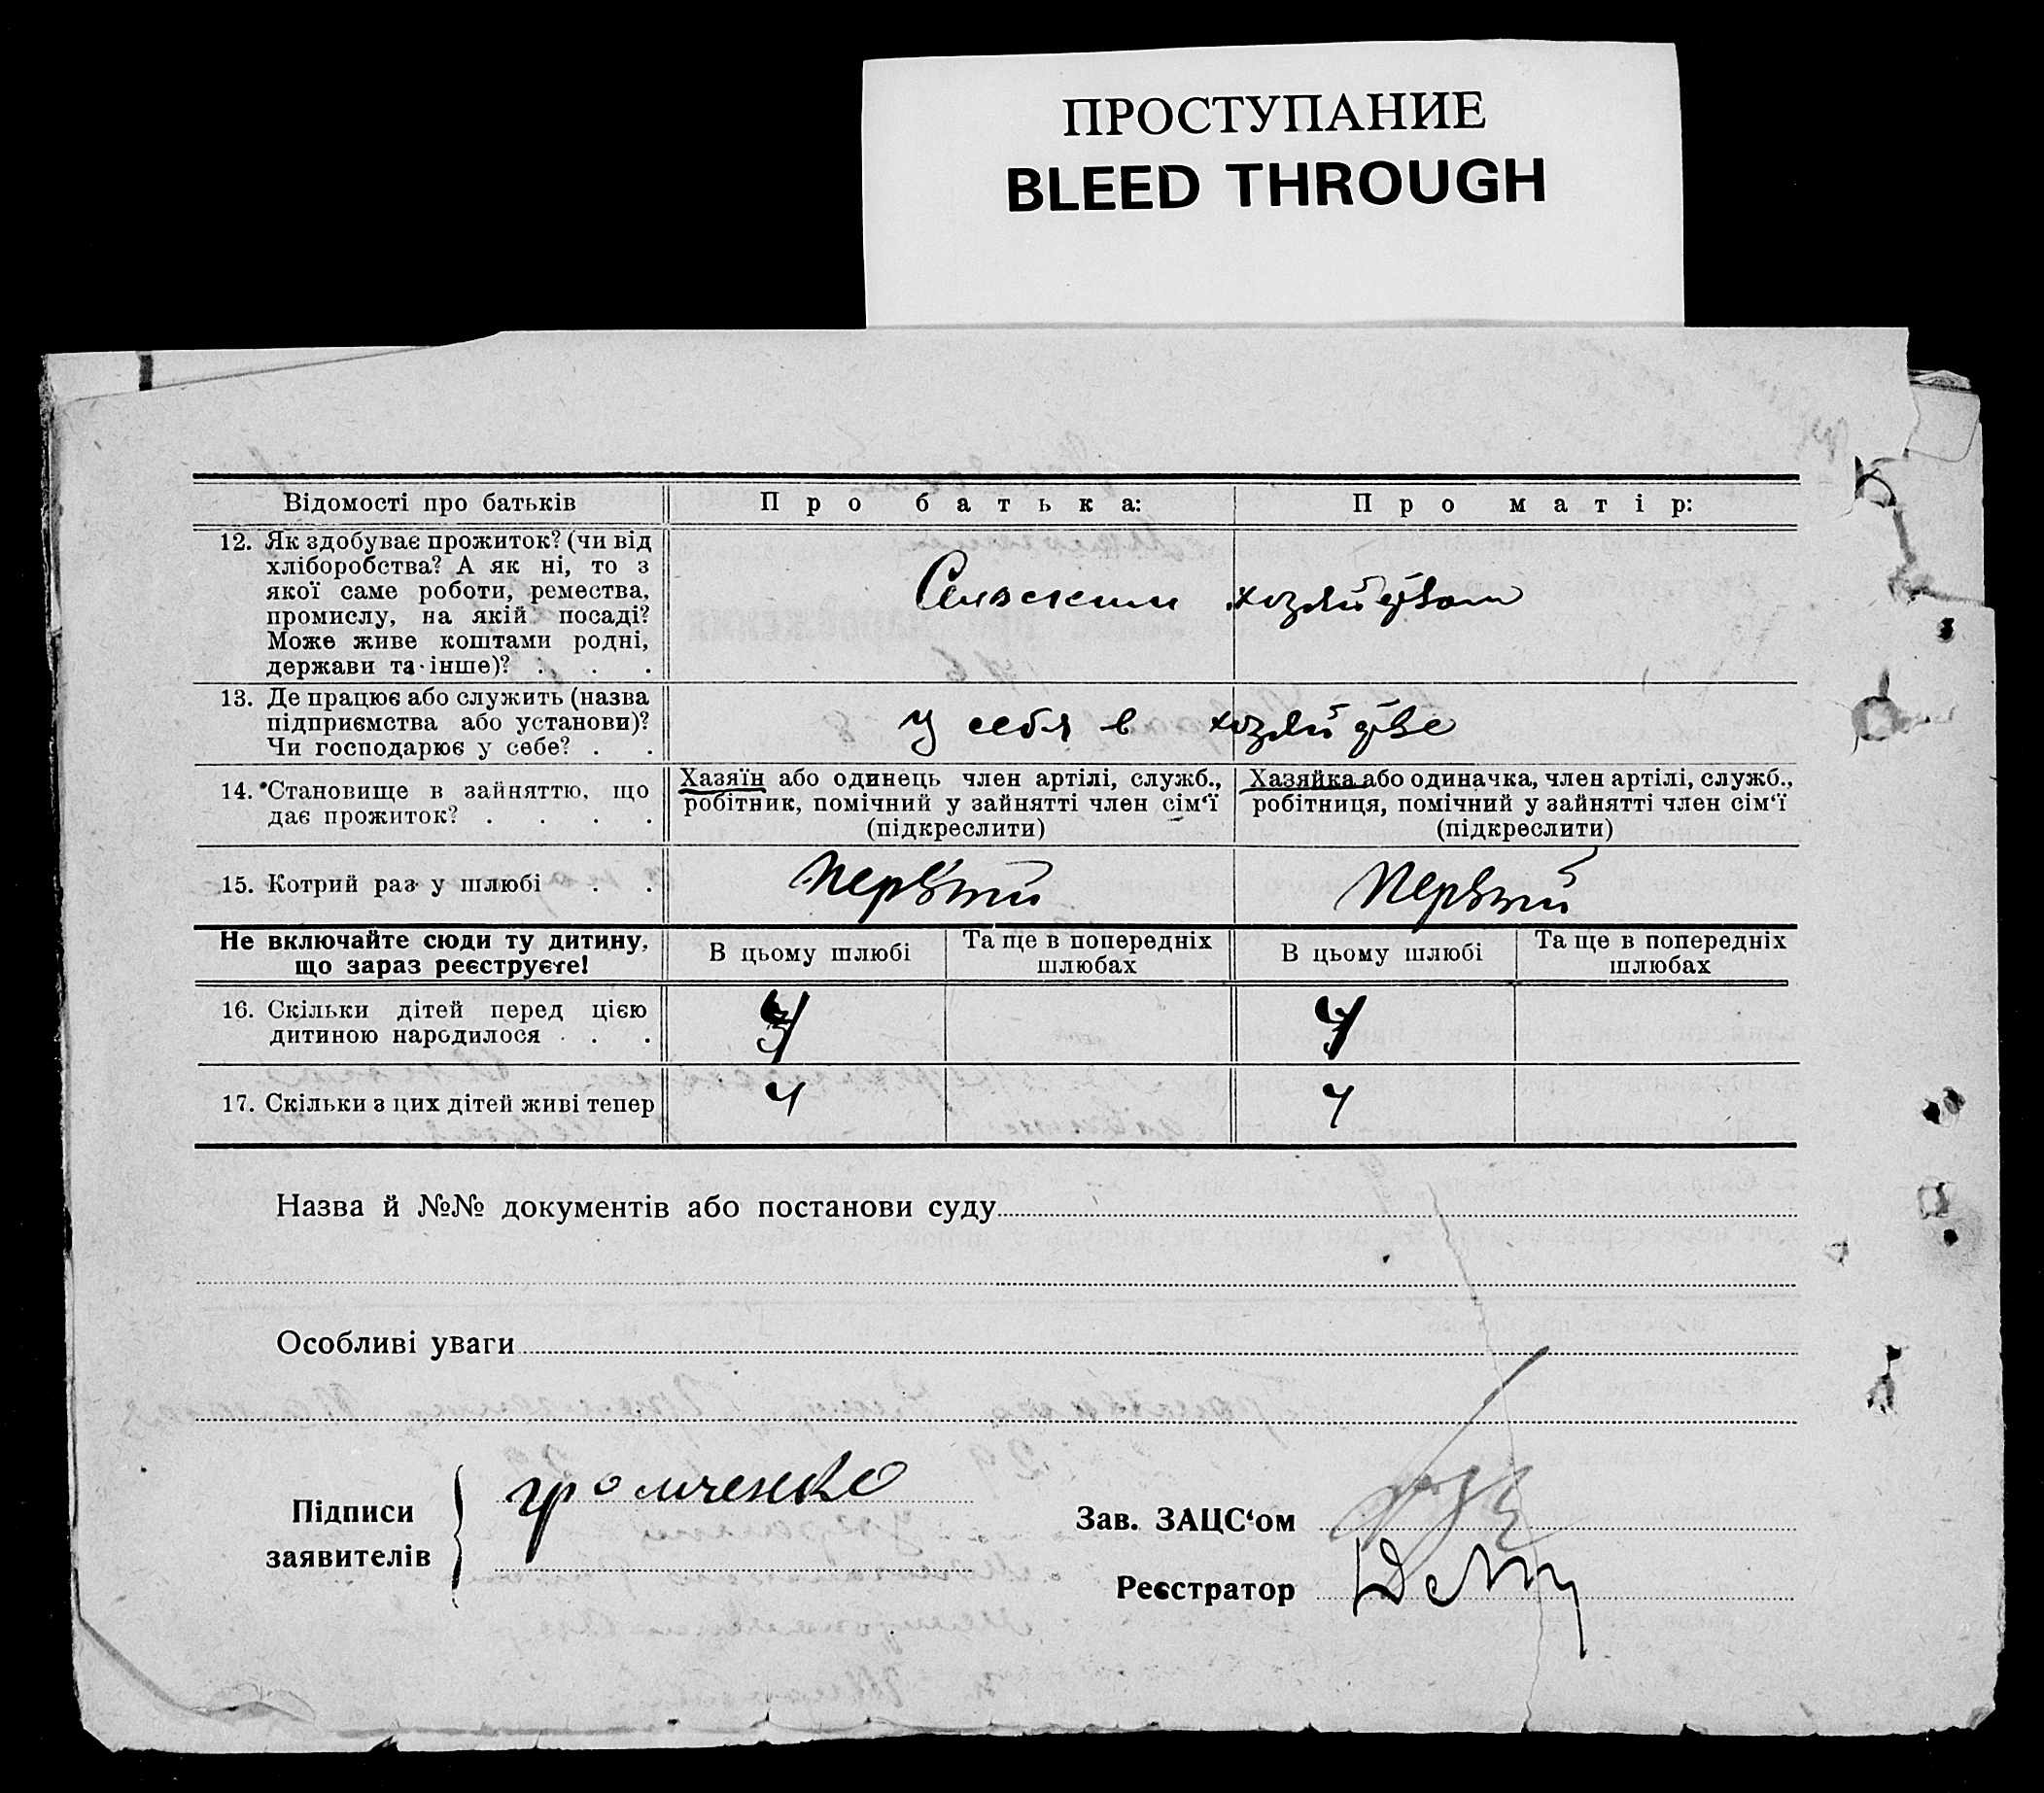 ПРОСТУПАНИЕ
BLEED THROUGH
Відомості про батьків
Про батька:
Про матір:
12. Як здобуває прожиток? (чи від
хліборобства? А як ні, то з
якої саме роботи, ремества,
промислу, на якій посаді?
Може живе коштами родні,
держави та інше)? . . .
Сельским хозяйством
13. Де працює або служить (назва
підприємства або установи)?
Чи господарює у себе? . .
у себя в хозяйстве
14. Становище в зайняттю, що
дає прожиток? . . . .
Хазяїн або одинець член артілі, служб.,
робітник, помічний у зайнятті член сім‘ї
(підкреслити)
Хазяйка або одиначка, член артілі, служб.,
робітниця, помічний у зайнятті член сім‘ї
(підкреслити)
15. Котрий раз у шлюбі . .
Первый
Первый
Не включайте сюди ту дитину,
що зараз реєструєте!
В цьому шлюбі
Та ще в попередніх
шлюбах
В цьому шлюбі
Та ще в попередніх
шлюбах
16. Скільки дітей перед цією
дитиною народилося . . .
17. Скільки з цих дітей живі тепер
4
4
Назва й №№ документів або постанови суду
Особливі уваги
Підписи
заявителів
Громченко
Зав. ЗАЦС‘ом
Реєстратор